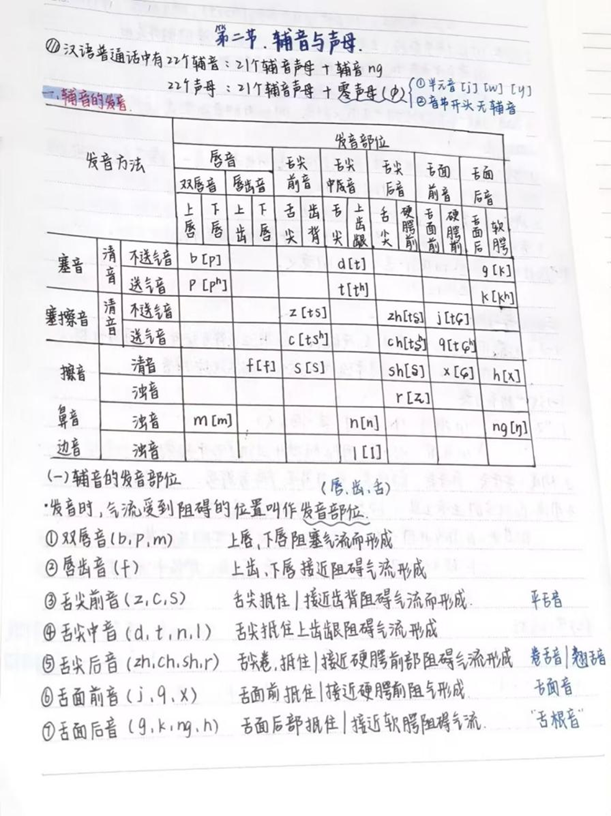 第二节.辅音与声母.
汉语普通话中有22个辅音：21个辅音声母+辅音ng
22个声母：21个辅音声母+零声母(φ) ①半元音[j][w][ɥ]
②音节开头无辅音
一.辅音的发音.
发音方法 发音部位
唇音 舌尖前音 舌尖中音 舌尖后音 舌面前音 舌面后音
双唇音 唇齿音
上唇 下唇 上齿 下唇 舌尖 齿背 舌尖 上齿龈 舌尖 硬腭前 舌面前 硬腭前 舌面后 软腭
塞音 清音 不送气音 b[p] d[t] g[k]
送气音 p[pʰ] t[tʰ] k[kʰ]
塞擦音 清音 不送气音 z[ts] zh[tʂ] j[tɕ]
送气音 c[tsʰ] ch[tʂʰ] q[tɕʰ]
擦音 清音 f[f] s[s] sh[ʂ] x[ɕ] h[x]
浊音 r[ʐ]
鼻音 浊音 m[m] n[n] ng[ŋ]
边音 浊音 l[l]
(一)辅音的发音部位 (唇,齿,舌)
·发音时,气流受到阻碍的位置叫作发音部位.
①双唇音(b,p,m) 上唇,下唇阻塞气流而形成
②唇齿音(f) 上齿,下唇接近阻碍气流形成
③舌尖前音(z,c,s) 舌尖抵住|接近齿背阻碍气流而形成. 平舌音
④舌尖中音(d,t,n,l) 舌尖抵住上齿龈阻碍气流形成
⑤舌尖后音(zh,ch,sh,r) 舌尖卷,抵住|接近硬腭前部阻碍气流形成 卷舌音|翘舌音
⑥舌面前音(j,q,x) 舌面前抵住|接近硬腭前阻气形成. 舌面音
⑦舌面后音(g,k,ng,h) 舌面后部抵住|接近软腭阻碍气流. "舌根音"